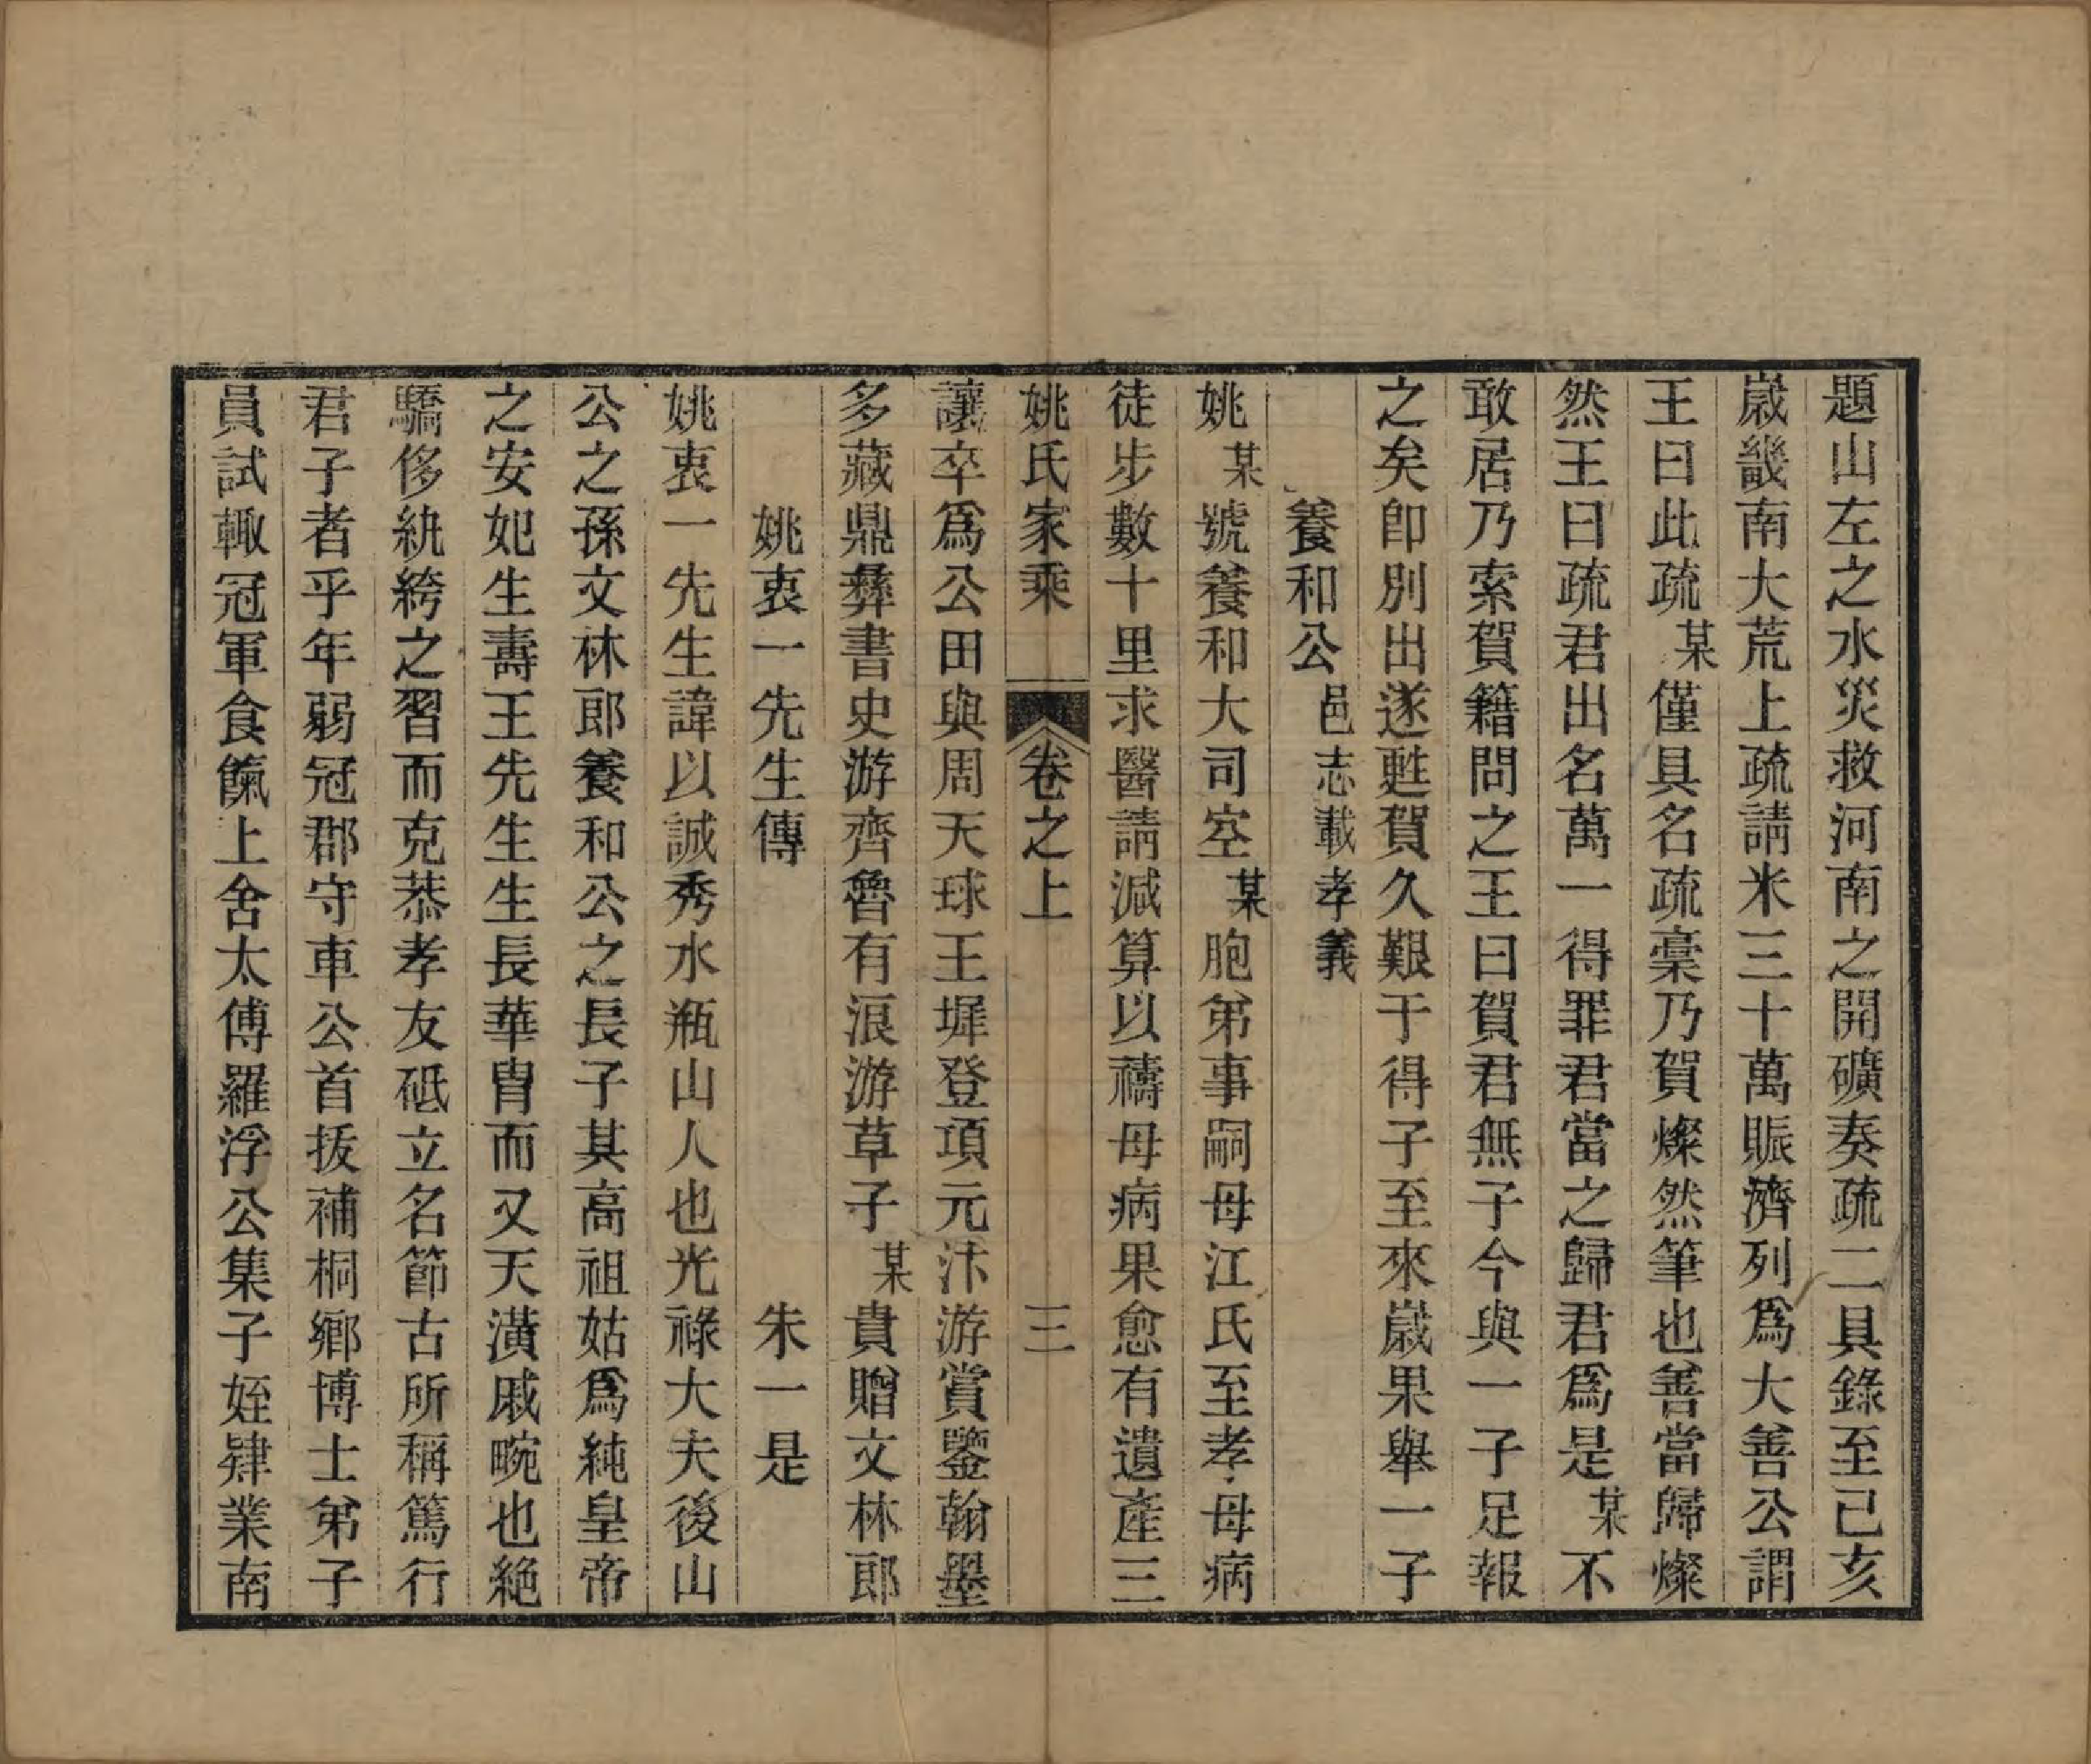 題山左之水災救河南之開礦奏疏二具錄至己亥
歲畿南大荒上疏請米三十萬賑濟列爲大善公謂
王曰此疏某僅具名疏稾乃賀燦然筆也善當歸燦
然王曰疏君出名萬一得罪君當之歸君爲是某不
敢居乃索賀籍問之王曰賀君無子今與一子足報
之矣卽別出遂甦賀久艱于得子至來歲果舉一子
養和公邑志載孝義
姚某號養和大司空某胞弟事嗣母江氏至孝母病
徒步數十里求醫請減算以禱母病果愈有遺產三
姚氏家乘 卷之上 三
讓卒爲公田與周天球王墀登項元汴游賞鑒翰墨
多藏鼎彝書史游齊魯有浪游草子某貴贈文林郎
姚衷一先生傳 朱一是
姚衷一先生諱以誠秀水瓶山人也光祿大夫後山
公之孫文林郎養和公之長子其高祖姑爲純皇帝
之安妃生壽王先生生長華胄而又天潢戚畹也絶
驕侈紈絝之習而克恭孝友砥立名節古所稱篤行
君子者乎年弱冠郡守車公首拔補桐鄉博士弟子
員試輙冠軍食餼上舍太傅羅浮公集子姪肄業南